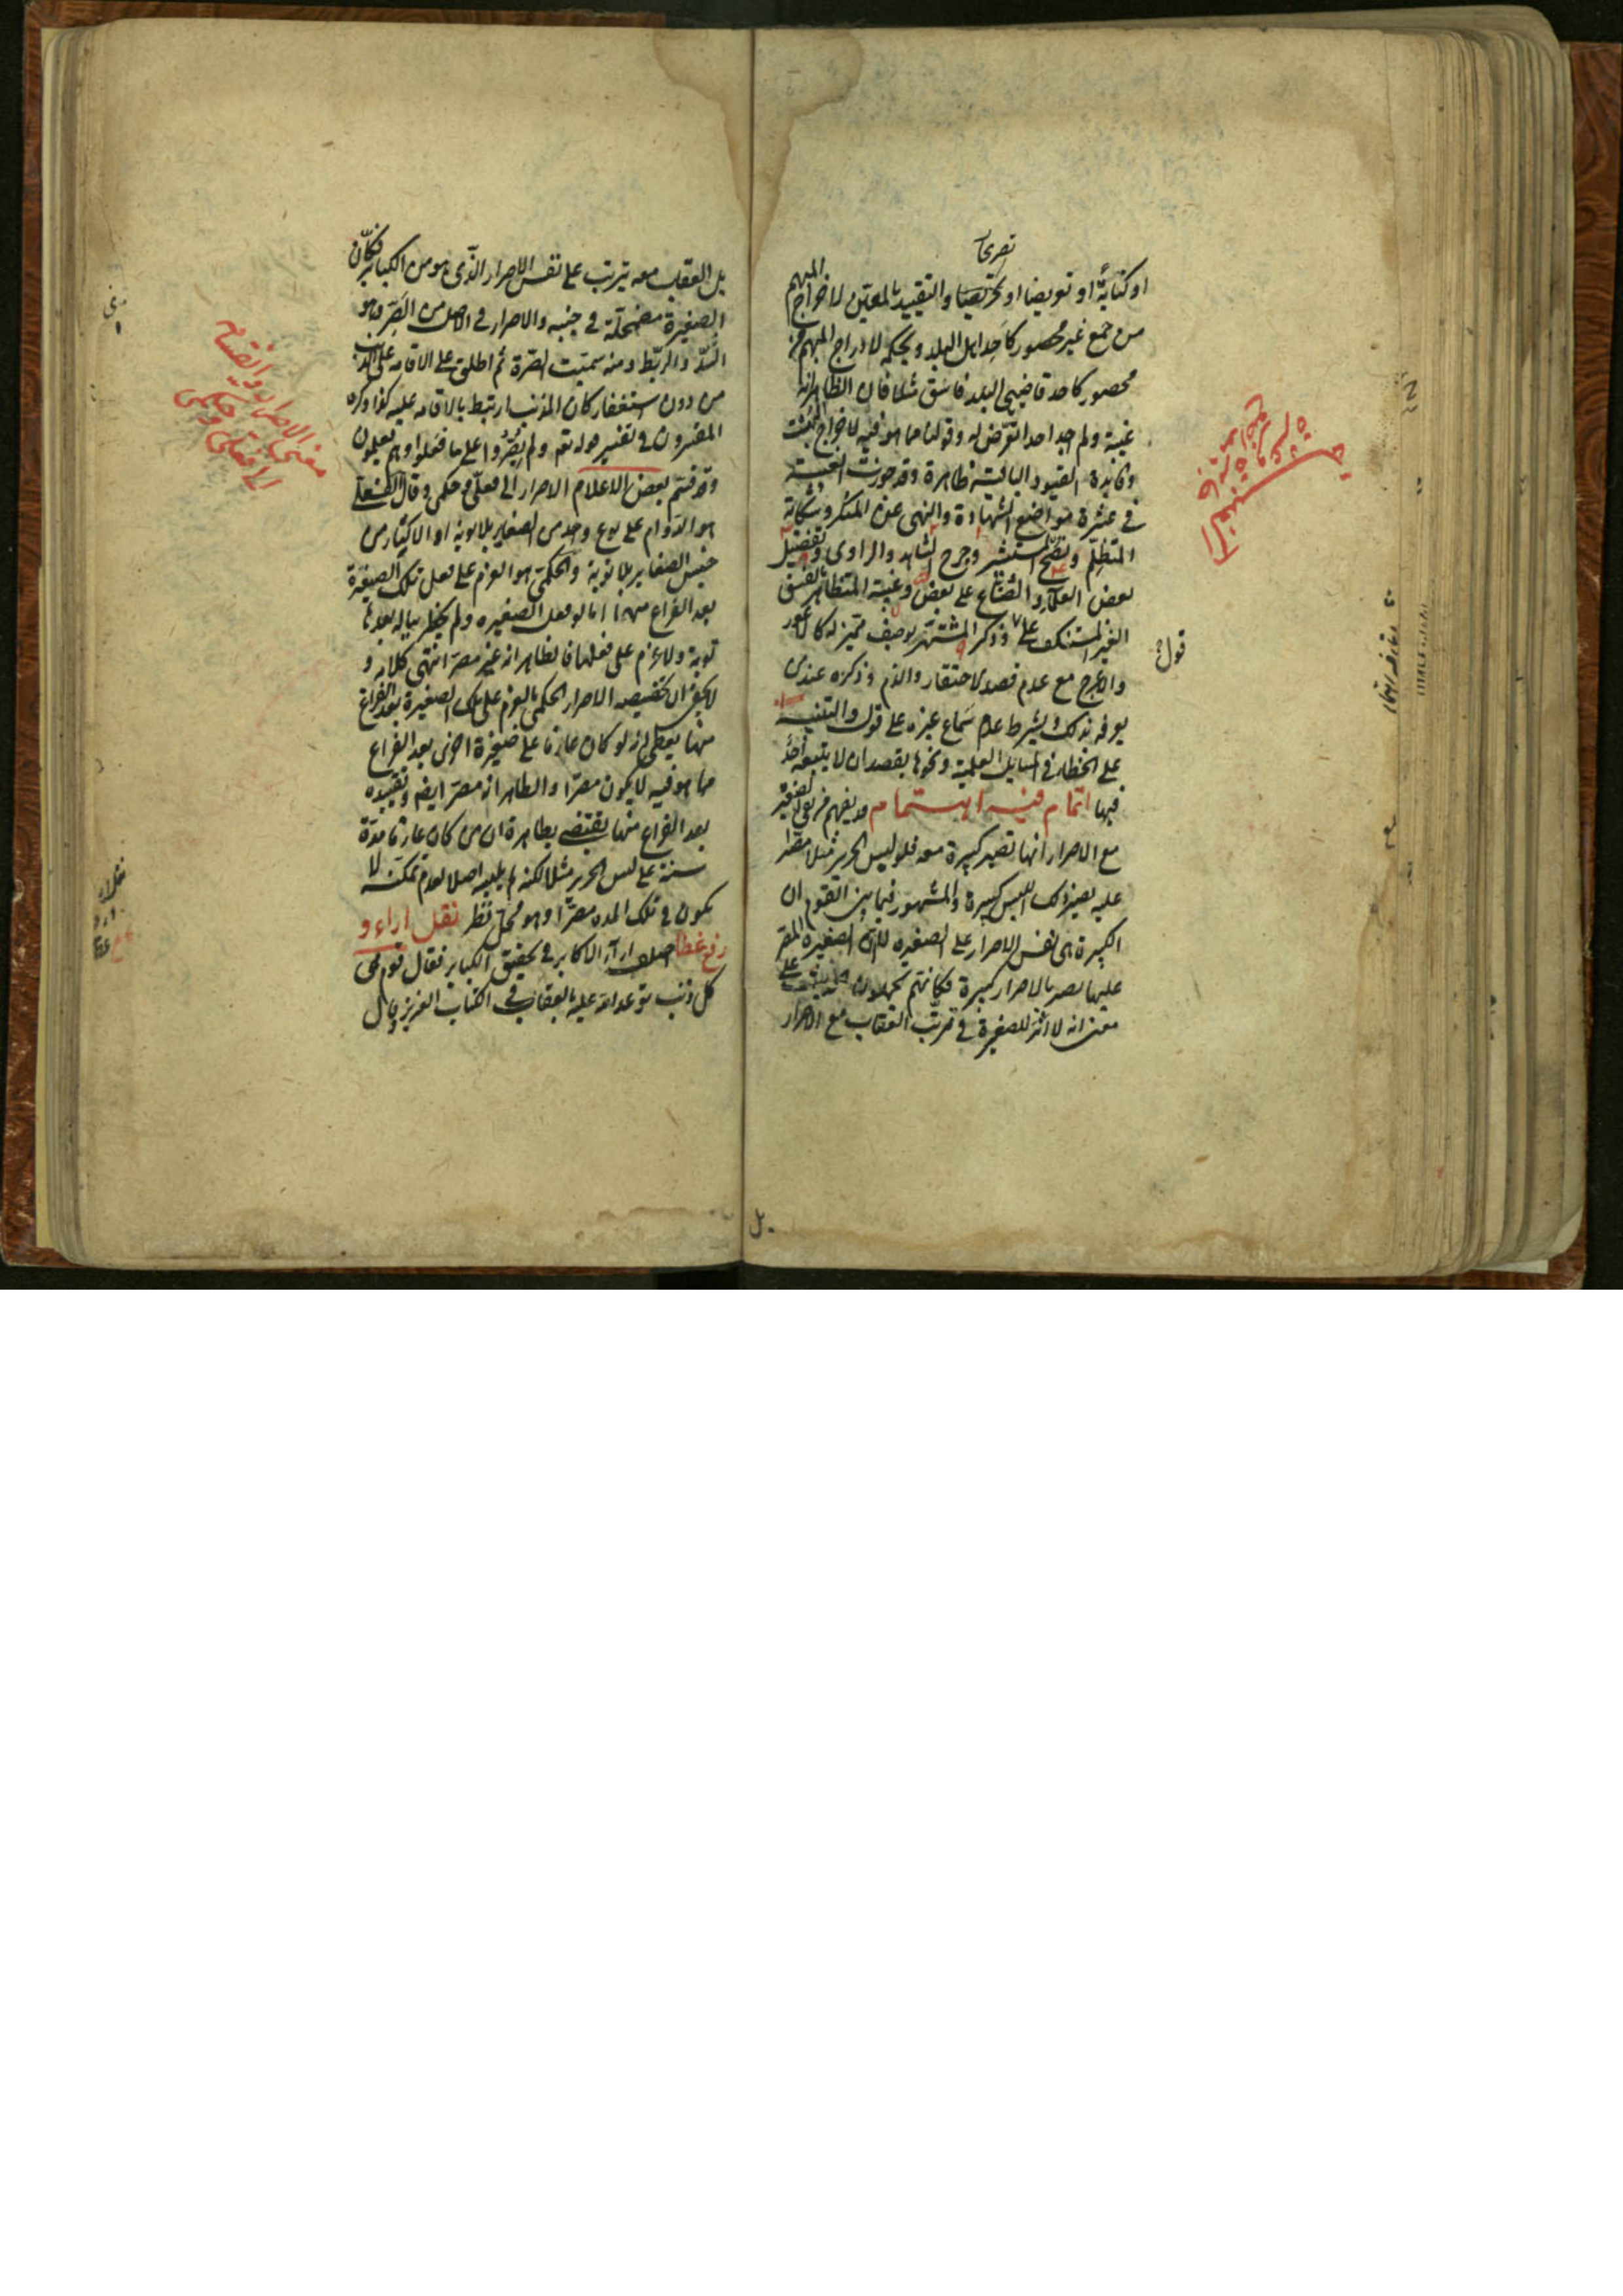 تصريحا
او كناية او تعريضا او تحريضا والتقييد بالمعين لاخراج المبهم
من جمع غير محصور كاحد اهل البلد وبحكمه لادراج المبهم من
محصور كاحد قاضيي البلد فاسق مثلا فان الظاهر انه
غيبة ولم اجد احدا تعرض له وقولنا مما هو فيه لاخراج البهت
وفايدة القيود الباقية ظاهرة وقد جوزت الغيبة
في عشرة مواضع الشهادة والنهى عن المنكر وشكاية
المتظلم ونصح المستشير وجرح الشاهد والراوى وتفضيل
بعض العلماء والصناع على بعض وغيبة المتظاهر بالفسق
الغير المستنكف على قول وذكر المشتهر بوصف مميز له كالاعور
والاعرج مع عدم قصد الاحتقار والذم وذكره عند من
يعرفه بذلك بشرط عدم سماع غيره على قول والتنبيه
على الخطاء في المسايل العلمية ونحوها بقصد ان لا يتبعه احد
فيها اتمام فيه اهتمام قد يفهم من قولهم لا صغيرة
مع الاصرار انها تصير كبيرة معه فلو لبس الحرير مثلا مصرا
عليه يصير ذلك اللبس كبيرة والمشهور فيما بين القوم ان
الكبيرة هى نفس الاصرار على الصغيرة لا ان الصغيرة المصر
عليها تصير بالاصرار كبيرة فكانهم يحملون الحديث على
معنى انه لا اثر للصغيرة في ترتب العقاب مع الاصرار
قول
بل
بل العقاب معه يترتب على نفس الاصرار الذى هو من الكباير فكان
الصغيرة مضمحلة في جنبه والاصرار في الاصل من الصر وهو
الشد والربط ومنه سميت الصرة ثم اطلق على الاقامة على الذنب
من دون استغفار كان المذنب ارتبط بالاقامة عليه كذا ذكره
المفسرون في تفسير قوله تعم ولم يصروا على ما فعلوا وهم يعلمون
وقد قسم بعض الاعلام الاصرار الى فعلى وحكمى وقال الفعلى
هو الدوام على نوع واحد من الصغاير بلا توبة او الاكثار من
جنس الصغاير بلا توبة والحكمى هو العزم على فعل تلك الصغيرة
بعد الفراغ منها اما لو فعل الصغيره ولم يخطر بباله بعدها
توبة ولا عزم على فعلها فالظاهر انه غير مصر انتهى كلامه و
لا يخفى ان تخصيصه الاصرار الحكمى بالعزم على تلك الصغيرة بعد الفراغ
منها يعطى انه لو كان عازما على صغيرة اخرى بعد الفراغ
مما هو فيه لا يكون مصرا والظاهر انه مصر ايضا وتقييده
بعد الفراغ منها يقتضى بظاهره ان من كان عازما مدة
سنة على لبس الحرير مثلا لكنه لم يلبسه اصلا لعدم تمكنه لا
يكون في تلك المدة مصرا وهو محل نظر نقل اراء و
رفع غطا اختلف اراء الاكابر في تحقيق الكباير فقال قوم هى
كل ذنب توعد الله عليه بالعقاب في الكتاب العزيز وقال
معنى الاصرار